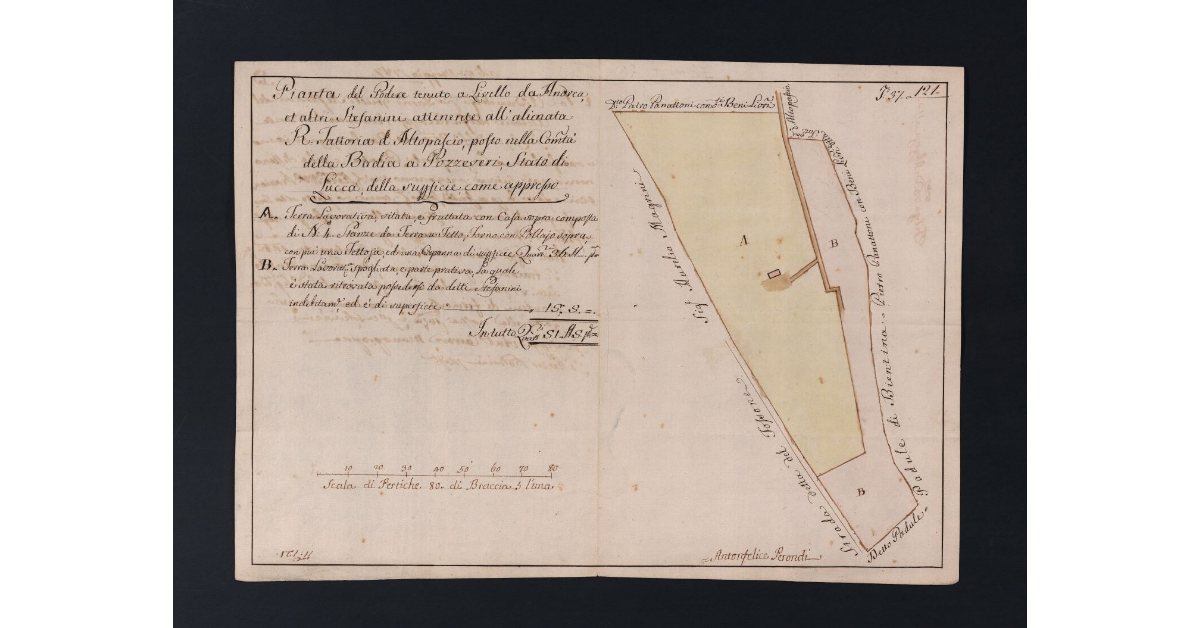 Pianta del Podere tenuto a Livello da Andrea,
et altri Stefanini attenente all'alienata
R. Fattoria d'Altopascio, posto nella Com.tà
della Badia a Pozzeveri, Stato di
Lucca, della superficie, come appresso
A. Terra Lavorativa, vitata, e fruttata con Casa sopra composta
di N. 4 Stanze da Terra a Tetto, Forno con Pollajo sopra,
con più una Tettoja, ed una Capanna di superficie
B. Terra Lavorat. spogliata, e parte prativa, la quale
è stata ritrovata possedersi da detti Stefanini
indebitam.e, ed è di superficie
15. 8. =
In tutto
10 20 30 40 50 60 70 80
Scala di Pertiche 80. di Braccia 5 l'una.
Pietro Panattoni con Beni
Altopascio
Sig. Magrini
A
B
B
Pietro Panattoni con Beni
Padule di Bientina
Strada detta del
Detto Padule
Antonfelice Perondi